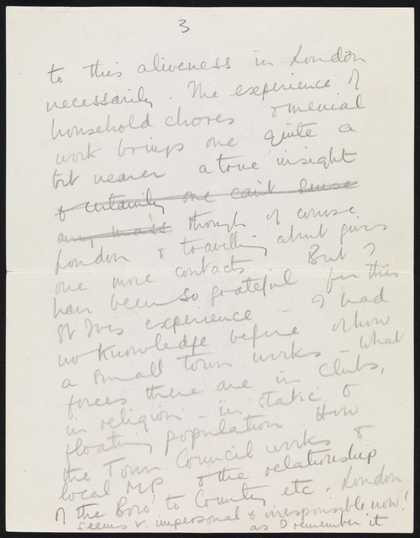 3
to this aliveness in London
necessarily. The experience of
household chores & menial
work brings one quite a
bit nearer a true insight
& certainly one can't sense
any mass though of course
London & travelling about gives
one more contacts. But I
have been so grateful for this
St Ives experience - I had
no knowledge before of how
a small town works - what
forces there are in clubs,
in religion - in static &
floating population How
the Town Council works &
local MP & the relationship
of the Boro' to County etc. London
seems v. impersonal & irresponsible now!
as I remember it